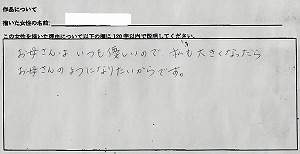 作品について
描いた女性の名前:
この女性を描いた理由について以下の欄に120字以内で説明してください。
お母さんは いつも優しいので 私も大きくなったら
お母さんのようになりたいからです。